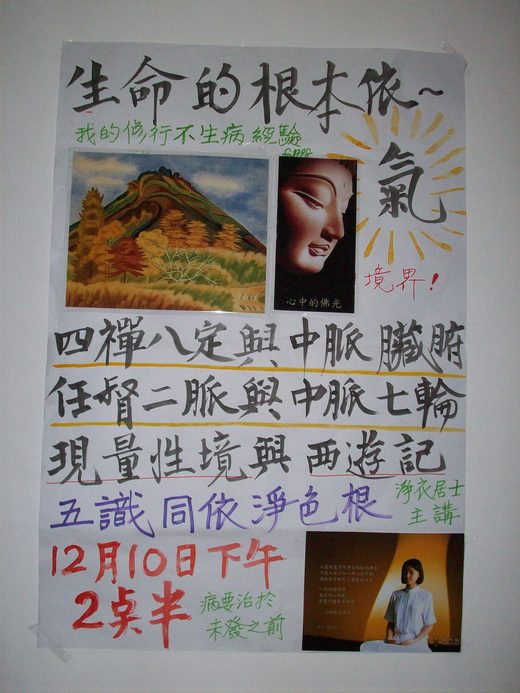 生命的根本依~
氣
我的修行不生病經驗
境界！
心中的佛光
四禪八定與中脈臟腑
任督二脈與中脈七輪
現量性境與西遊記
五識同依淨色根
淨衣居士
主講
12月10日下午
2点半
病要治於
未發之前